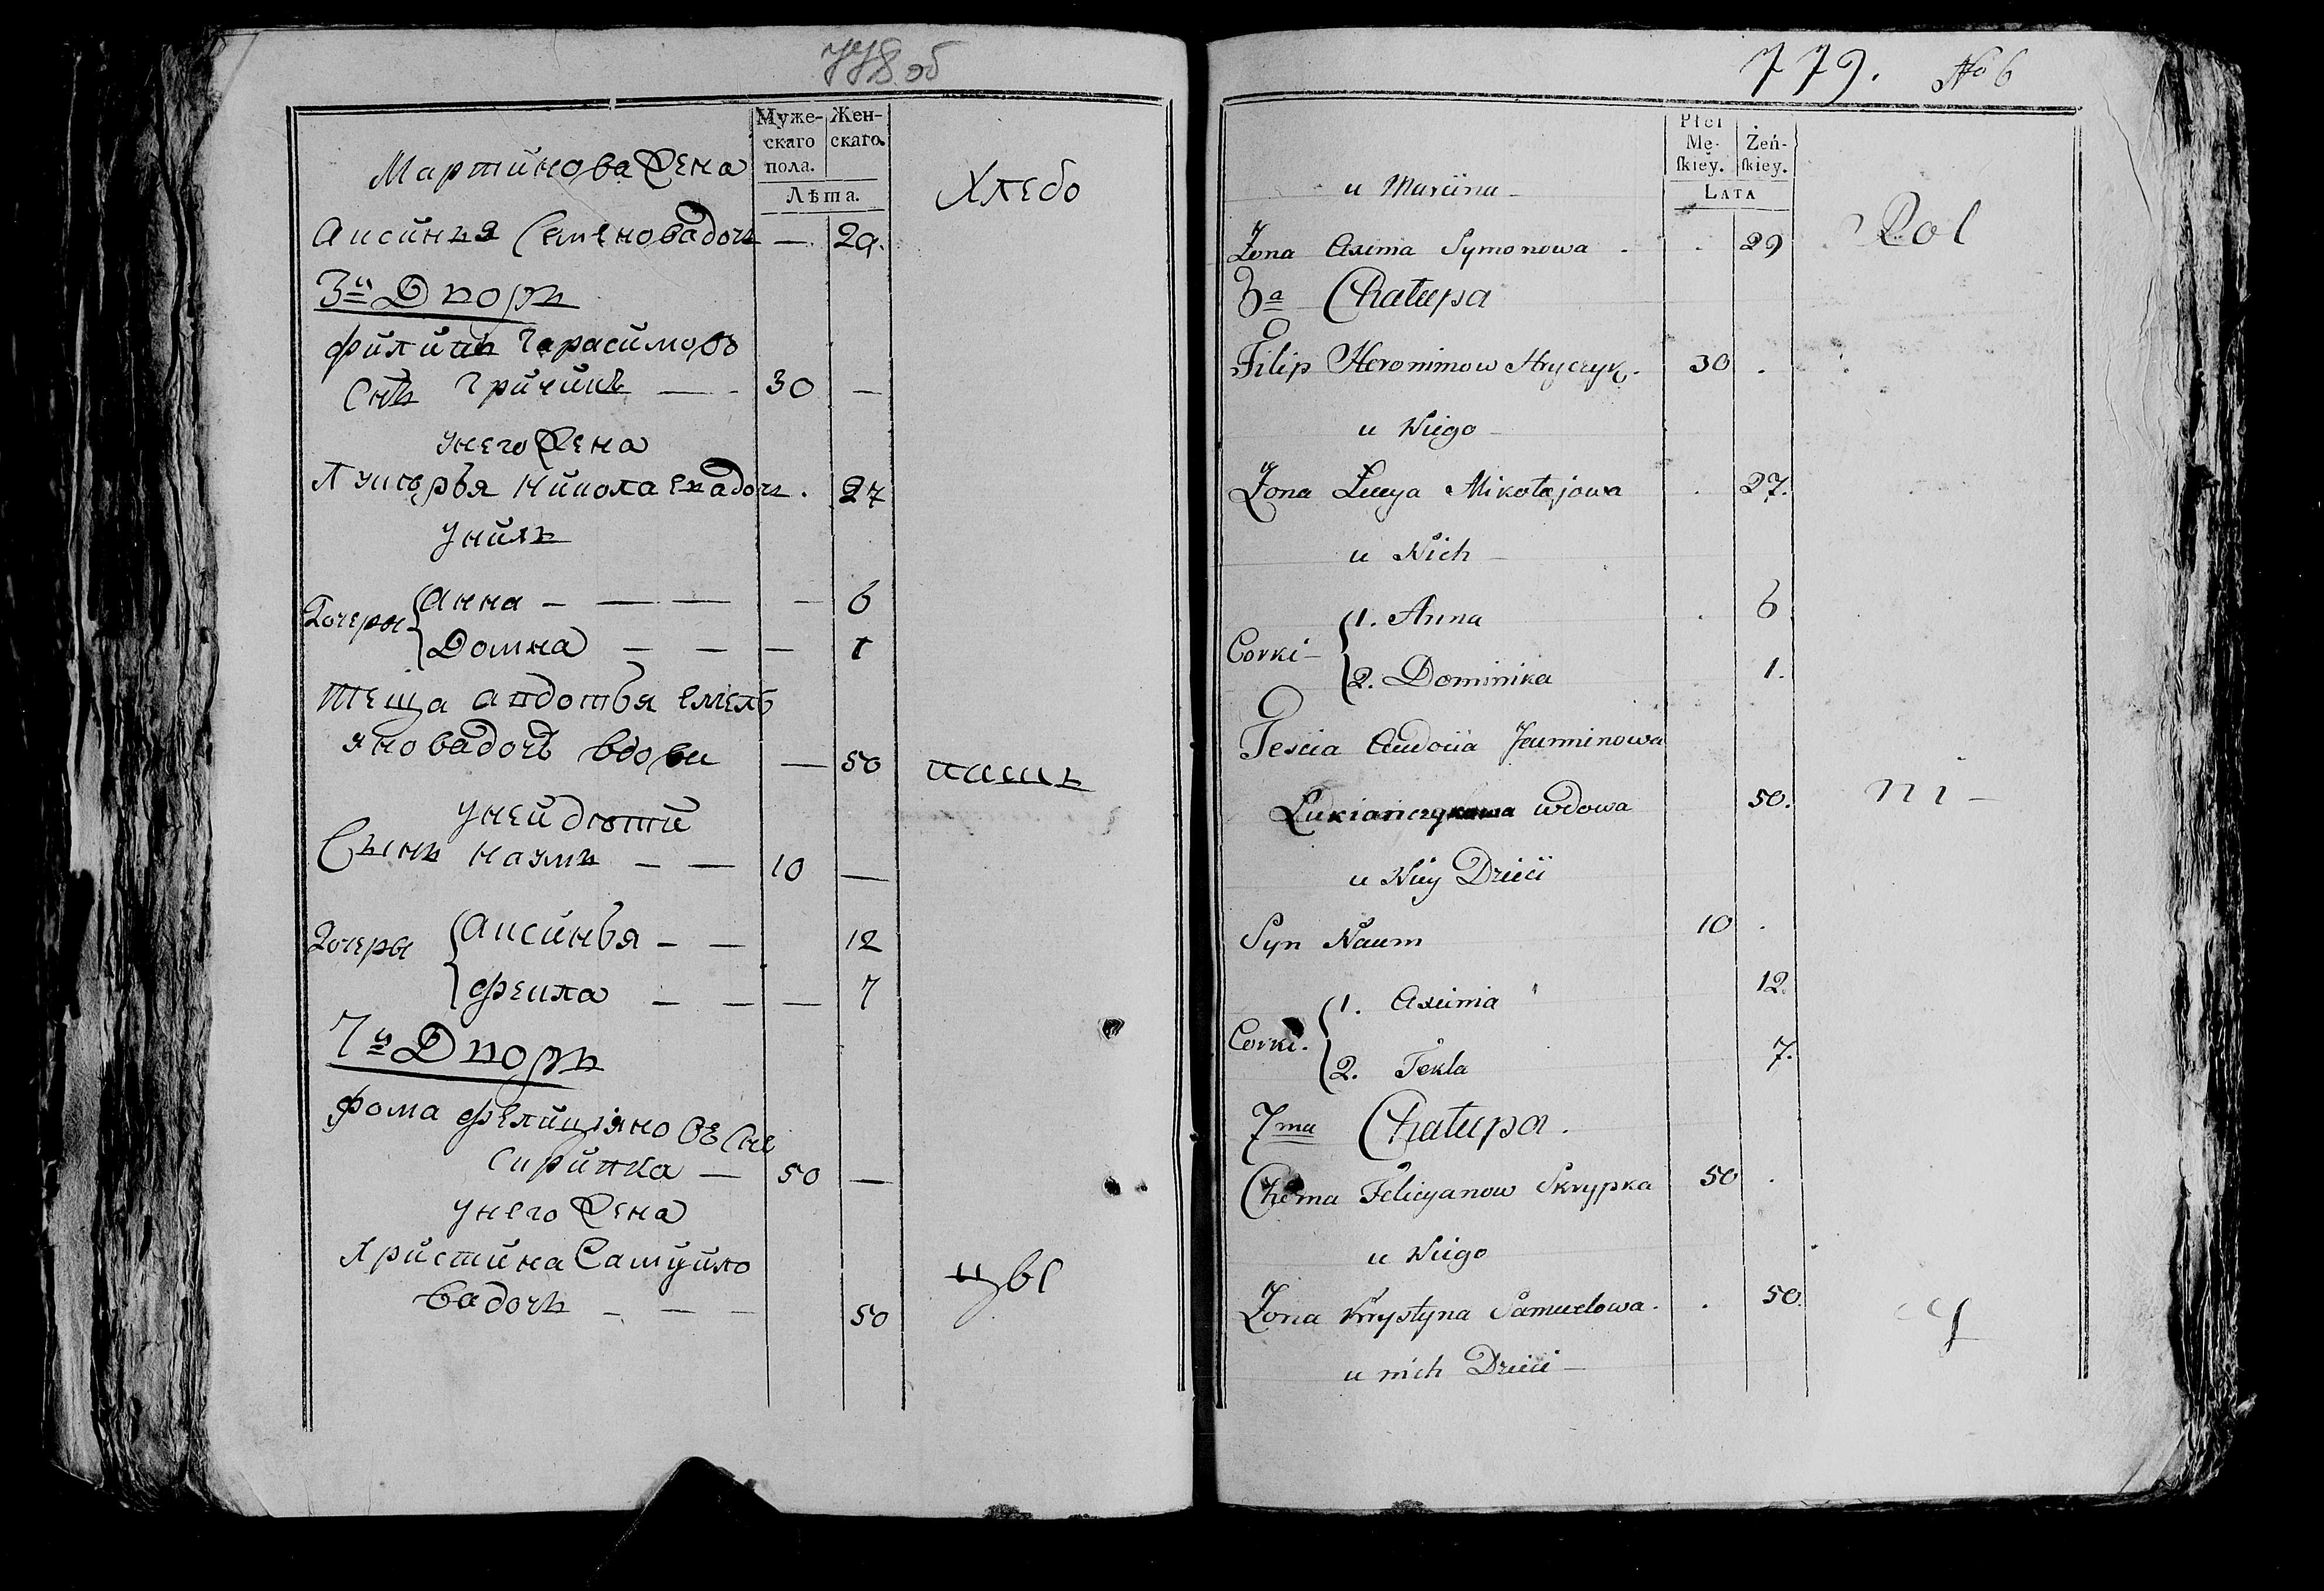 778 об
Муже-
скаго
пола.
Жен-
скаго.
Лѣта.
Мартинова Жена
Хлебо
Аксиния Семеновадочь — 29.
3й Дворъ
Филипъ Гарасимовъ
Снъ Гричикъ — 30 —
Унего Жена
Лукерья Николаевадочь . 27
Унихъ
Дочеры { Анна — — — — 6
Домна — — — 1
Теща Авдотья Емель
яновадочь вдова — 50
пашъ
Уней дѣти
Сынъ Наумъ — — 10 —
Дочеры { Аксинья — — 12
Фекла — — — 7
7й Дворъ
Фома Фелициановъ Снъ
Скрипка — 50 —
Унего Жена
Христина Самуило
вадочь — — — 50
цы
779. No 6
Płci
Mę-
ſkiey.
Żeń-
ſkiey.
LATA
u Marcina —
Rol
Żona Axinia Symonowa - . 29
3a Chałupa
Filip Heronimow Hryczyk. 30 .
u Niego —
Żona Łucya Mikołajowa . 27.
u Nich —
Corki — { 1. Anna . 6
2. Dominika 1.
Teścia Audocia Jaurminowa
Łukiańczykowa wdowa 50.
ni —
u Niey Dzieci
Syn Naum 10 .
Corki. { 1. Axinia 12.
2. Tekla 7.
7ma Chałupa.
Choma Felicyanow Skrypka 50 .
u Niego
Żona Krystyna Samuelowa. . 50.
cy
u nich Dzieci —